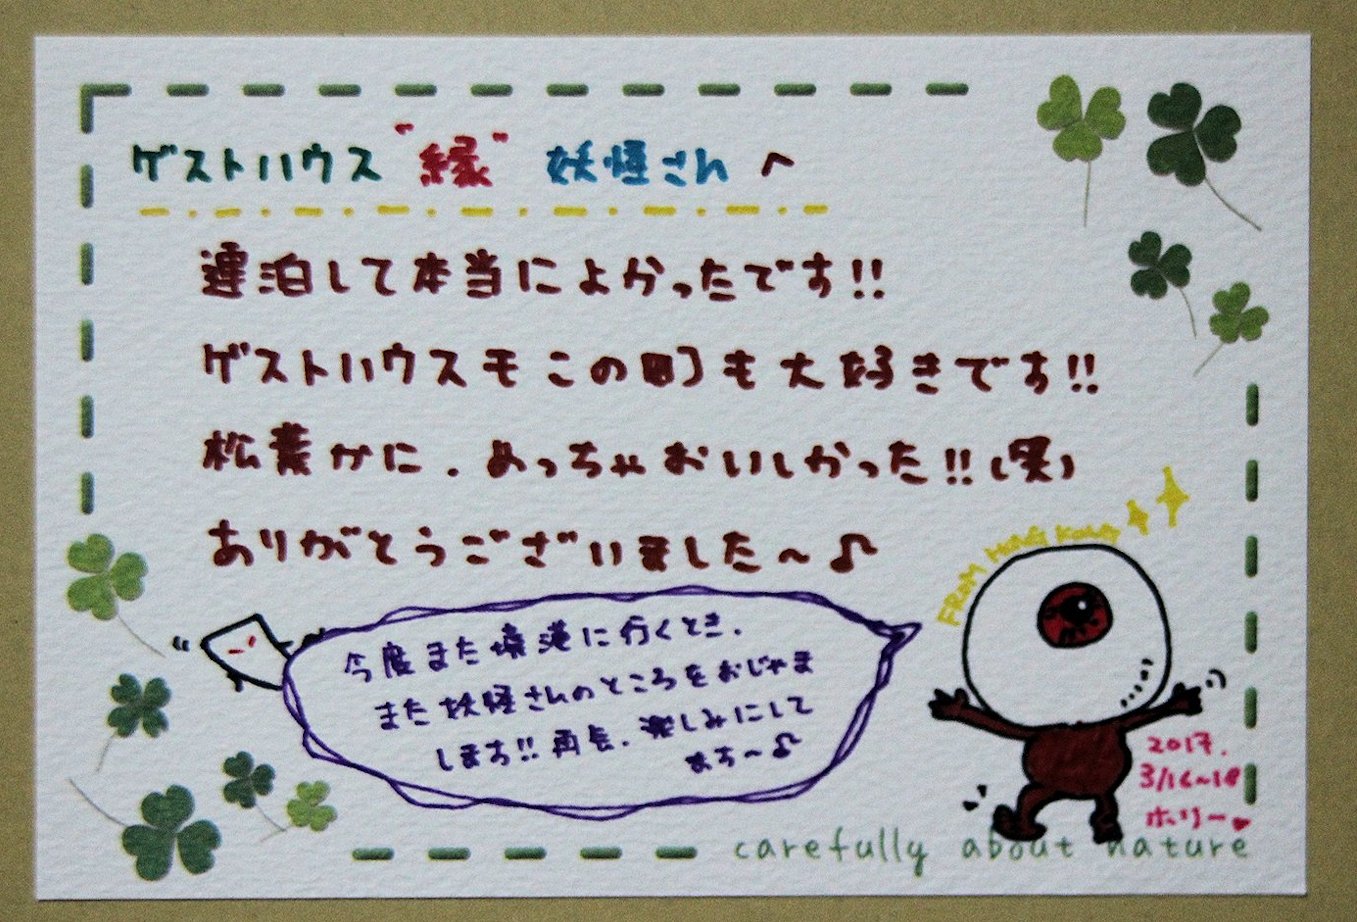 ゲストハウス "縁" 妖怪さんへ
連泊して本当によかったです!!
ゲストハウスモこの町も大好きです!!
松葉かに、めっちゃおいしかった!!(笑)
ありがとうございました〜♪
今度また境港に行くとき、
また妖怪さんのところをおじゃま
します!! 再会、楽しみにして
ます〜♪
FROM HONG KONG
2017.
3/16~18
ホリー♥
carefully about nature